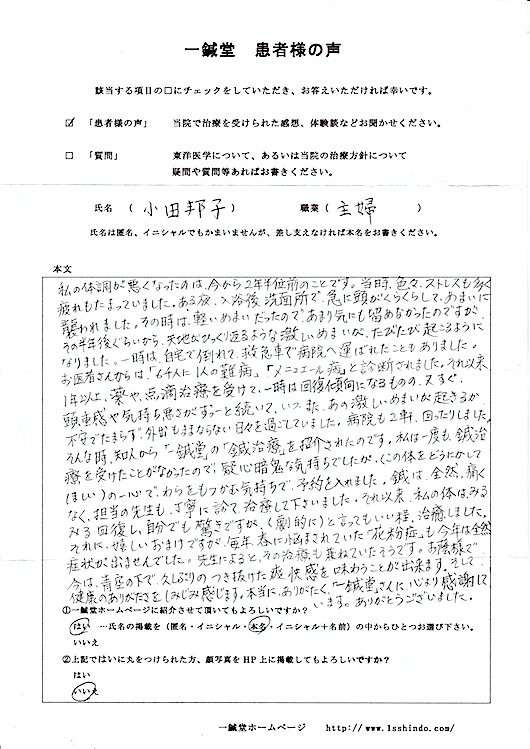 一鍼堂 患者様の声
該当する項目の□にチェックをしていただき、お答えいただければ幸いです。
☑ 「患者様の声」 当院で治療を受けられた感想、体験談などお聞かせください。
□ 「質問」 東洋医学について、あるいは当院の治療方針について
疑問や質問等あればお書きください。
氏名 ( 小田邦子 ) 職業 ( 主婦 )
氏名は匿名、イニシャルでもかまいませんが、差し支えなければ本名をお書きください。
本文
私の体調が悪くなったのは、今から2年半位前のことです。当時、色々、ストレスも多く
疲れもたまっていました。ある夜、入浴後、洗面所で、急に頭がくらくらして、めまいに
襲われました。その時は、軽いめまいだったので、あまり気にも留めなかったのですが、
その半年後ぐらいから、天地がひっくり返るような激しいめまいが、たびたび起こるように
なりました。一時は、自宅で倒れて、救急車で病院へ運ばれたこともありました。
お医者さんからは、「6千人に1人の難病」「メニエール病」と診断されました。それ以来、
1年以上、薬や、点滴治療を受けて、一時は回復傾向になるものの、又すぐ、
頭重感や気持ち悪さがずーっと続いて、いつ、また、あの激しいめまいが起きるか、
不安でたまらず、外出もままならない日々を過ごしていました。病院も2軒、回ったりしました。
そんな時、知人から「一鍼堂」の「鍼治療」を紹介されたのです。私は一度も、鍼治
療を受けたことがなかったので、疑心暗鬼な気持ちでしたが、(この体をどうにかして
ほしい)の一心で、わらをもつかむ気持ちで、予約を入れました。鍼は、全然、痛く
なく、担当の先生も、丁寧に診て、治療して下さいました。それ以来、私の体は、みる
みる回復し、自分でも驚きですが、(劇的に)と言ってもいい程、治癒しました。
それに、嬉しいおまけですが、毎年、春に悩まされていた「花粉症」も今年は全然
症状が出ませんでした。先生によると、その治療も兼ねていたそうです。お蔭様で
今は、青空の下で、久しぶりのつき抜けた爽快感を味わうことが出来ます。そして
健康のありがたさをしみじみ感じます。本当に、ありがたく、「一鍼堂」さんに、心より感謝して
います。ありがとうございました。
①一鍼堂ホームページに紹介させて頂いてもよろしいですか?
はい …氏名の掲載を(匿名・イニシャル・本名・イニシャル+名前)の中からひとつお選び下さい。
いいえ
②上記ではいに丸をつけられた方、顔写真をHP上に掲載してもよろしいですか?
はい
いいえ
一鍼堂ホームページ http://www.1sshindo.com/